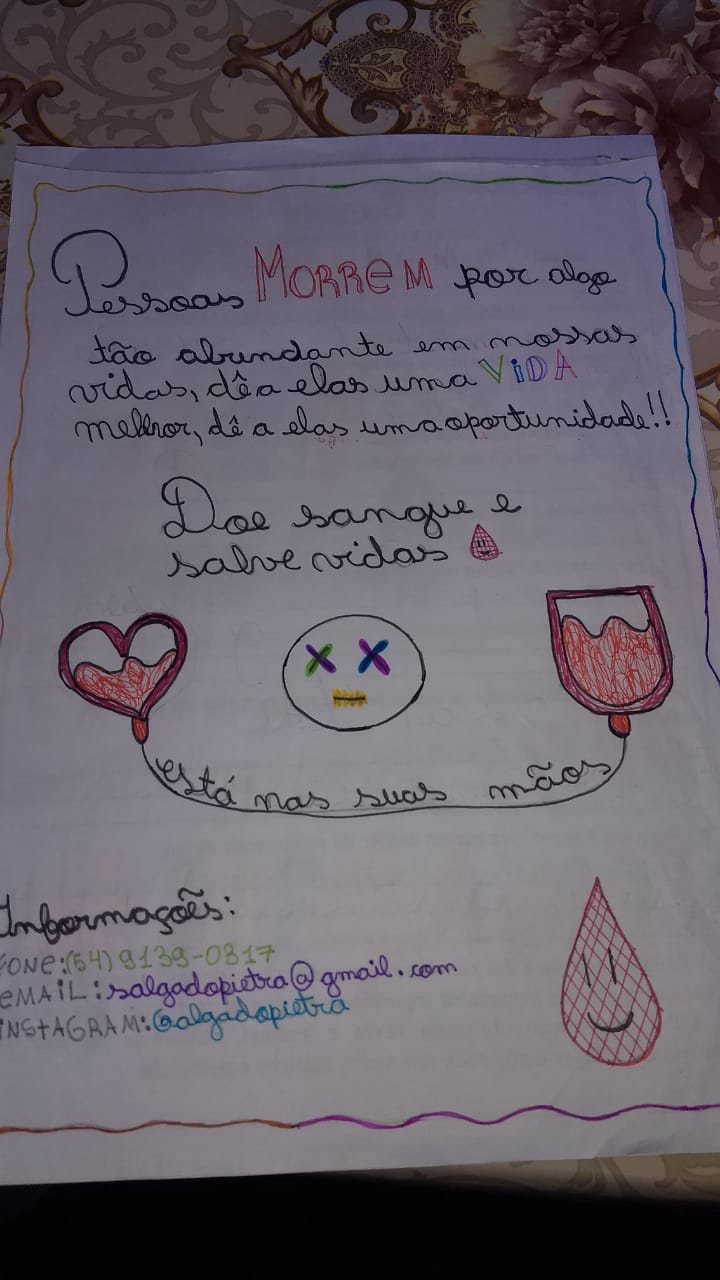 Pessoas MORREM por algo
tão abundante em nossas
vidas, dê a elas uma ViDA
melhor, dê a elas uma oportunidade!!
Doe sangue e
salve vidas
está nas suas mãos
Informações:
FONE:(54) 9139-0317
eMAiL: salgadopietra@gmail.com
iNStAGRAM: @algadopietra